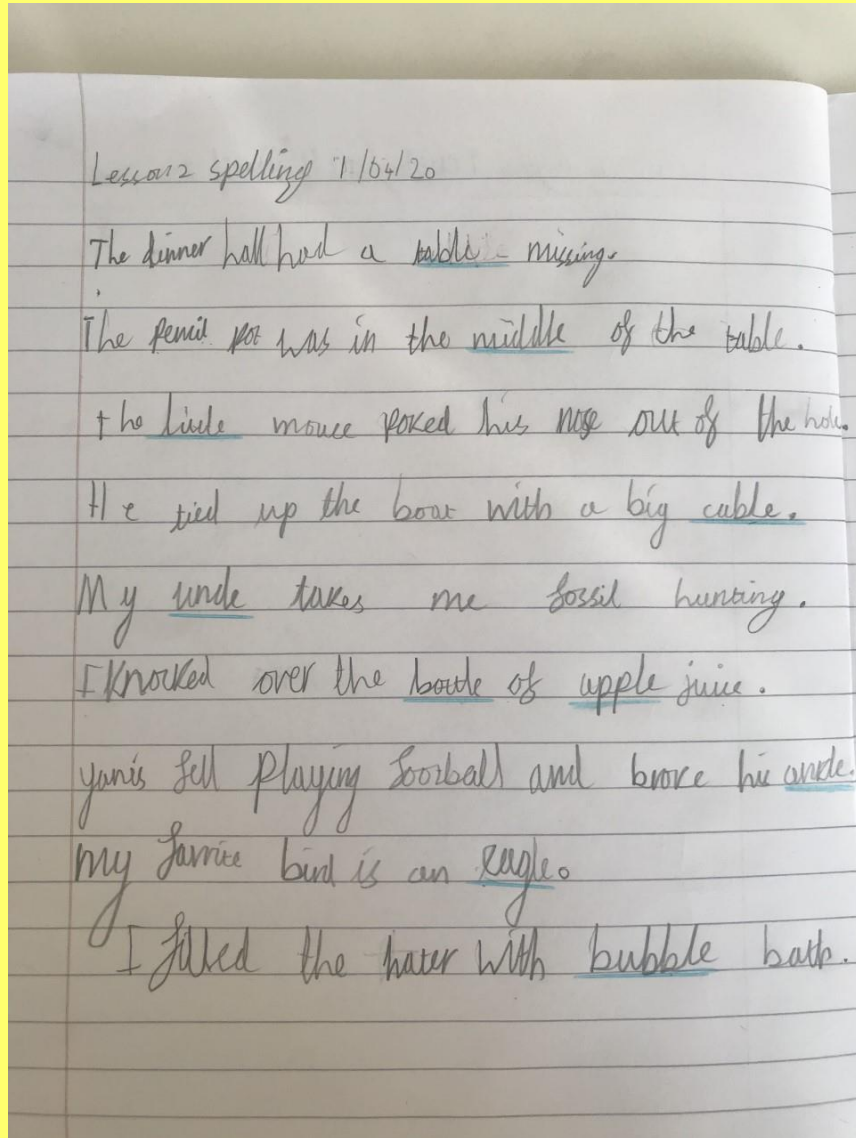 Lesson 2 spelling 1/04/20
The dinner hall had a table missing.
The pencil pot was in the middle of the table.
the little mouce poked his nose out of the hole.
He tied up the boat with a big cable.
My uncle takes me fossil hunting.
I knocked over the bottle of apple juice.
yanis fell playing football and broke his ancle.
my favrite bird is an eagle.
I filled the hater with bubble bath.